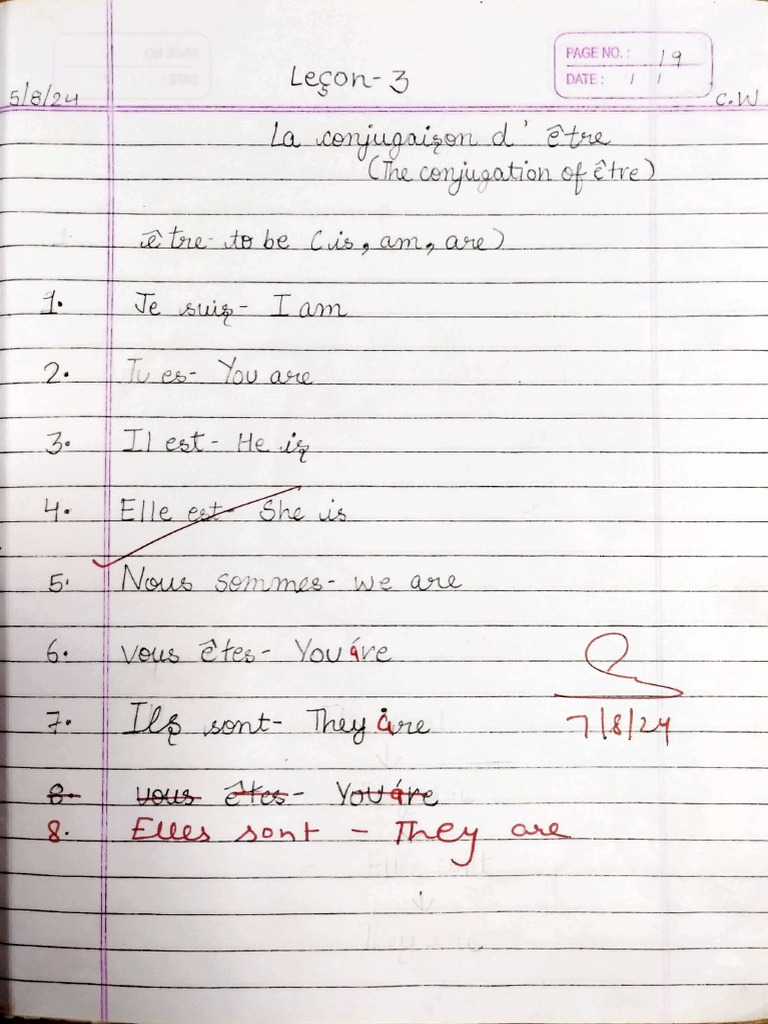 PAGE NO.: 19
DATE: / /
Leçon-3
5/8/24
C.W
La conjugaison d' être
(The conjugation of être)
être- to be (is, am, are)
1. Je suis- I am
2. Tu es- You are
3. Il est- He is
4. Elle est- She is
5. Nous sommes- we are
6. vous êtes- You are
7. Ils sont- They are
7/8/24
8. vous êtes- You are
8. Elles sont - They are